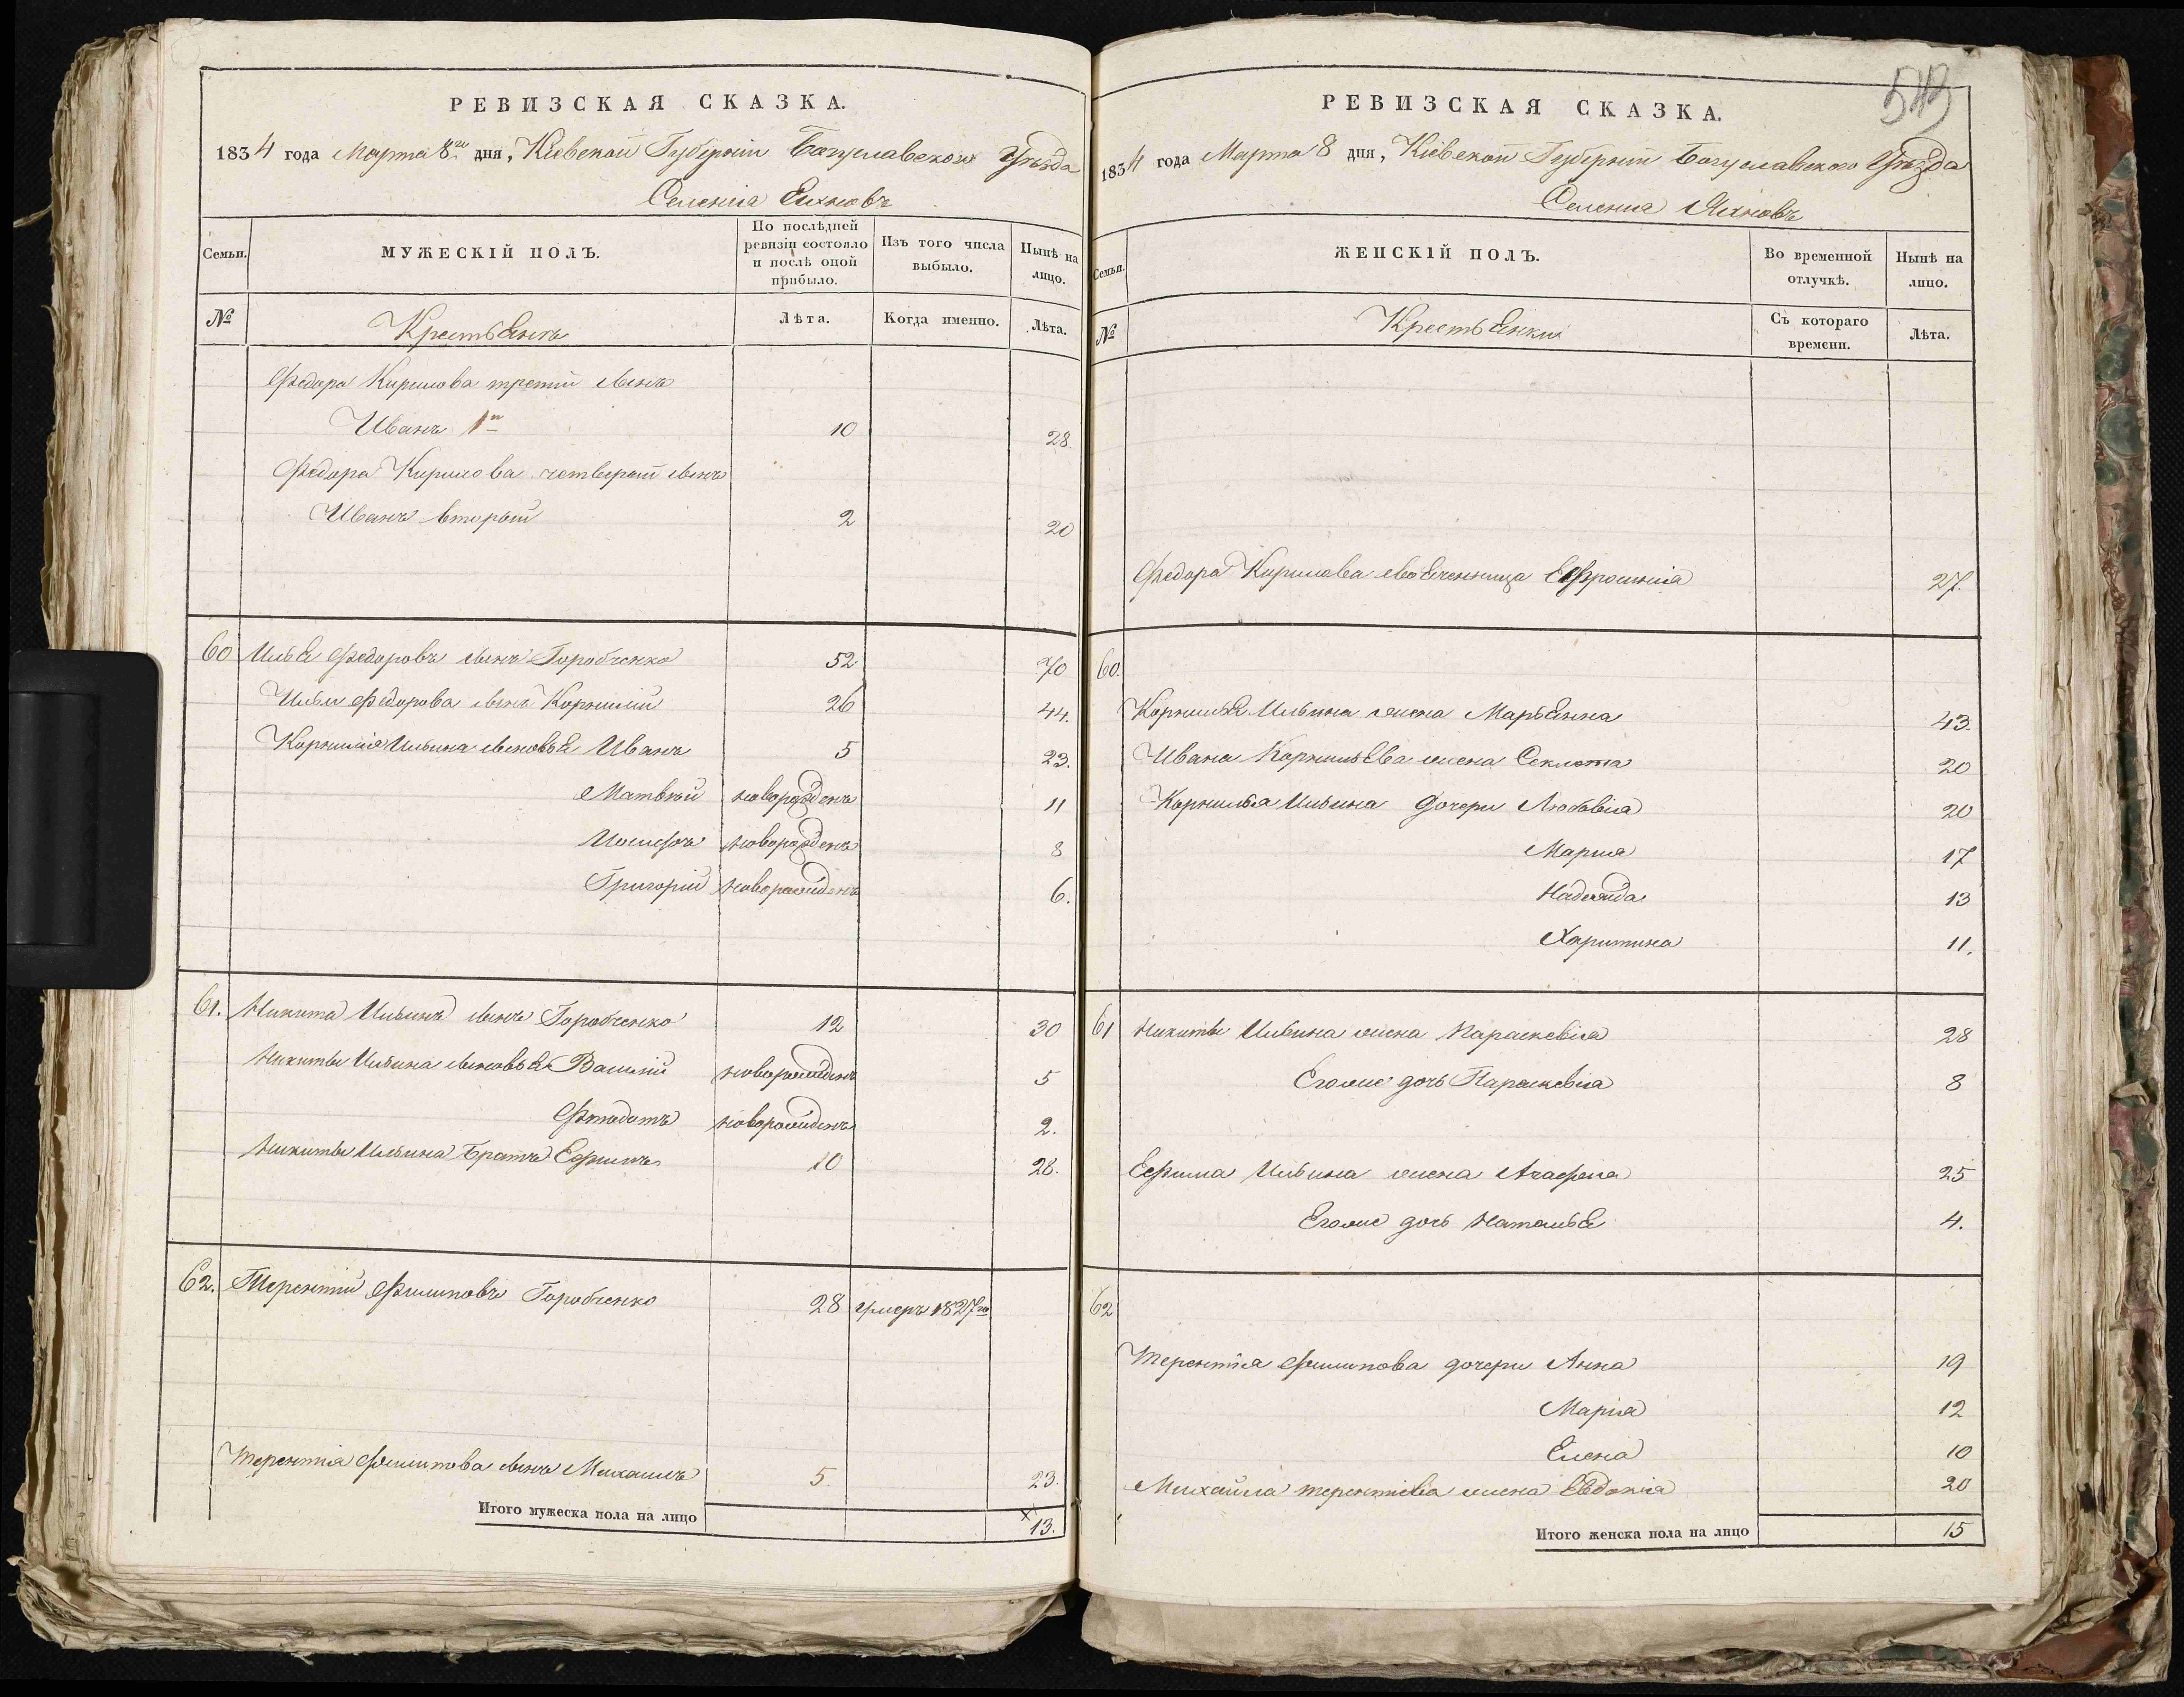 РЕВИЗСКАЯ СКАЗКА.
1834 года Марта 8го дня, Кіевской Губерніи Богуславского Уѣзда
Селенія Яхновъ
Семьи. МУЖЕСКІЙ ПОЛЪ. По послѣдней ревизіи состояло и послѣ оной прибыло. Изъ того числа выбыло. Нынѣ на лицо.
№ Крестьянъ Лѣта. Когда именно. Лѣта.
Федора Кирилова третій сынъ
Иванъ 1й 10 28.
Федора Кирилова четвертый сынъ
Иванъ вторый 2 20
60 Илья Федоровъ сынъ Горобченко 52 70
Ильи Федорова сынъ Корнилій 26 44.
Корнилія Ильина сыновья Иванъ 5 23.
Матвѣй новорожденъ 11
Иосифъ новорожденъ 8
Григорій новорожденъ 6.
61. Никита Ильинъ сынъ Горобченко 12 30
Никиты Ильина сыновья Василій новорожденъ 5
Фтодотъ новорожденъ 2.
Никиты Ильина Братъ Ефимъ 10 28.
62. Терентій Филиповъ Горобченко 28 умеръ 1827го
Терентія Филипова сынъ Михаилъ 5. 23.
Итого мужеска пола на лицо 13.
РЕВИЗСКАЯ СКАЗКА.
1834 года Марта 8 дня, Кіевской Губерніи Богуславского Уѣзда
Селенія Яхновъ
Семьи. ЖЕНСКІЙ ПОЛЪ. Во временной отлучкѣ. Нынѣ на лицо.
№ Крестьянки Съ котораго времени. Лѣта.
Федора Кирилова своячениица Ефросинія 27.
60.
Корнилья Ильина жена Марьянна 43.
Ивана Корнильева жена Секлета 20
Корнилья Ильина дочери Любовія 20
Мария 17
Надежда 13
Харитина 11.
61 Никиты Ильина жена Параскевія 28
Егоже дочь Параскевія 8
Ефима Ильина жена Агафія 25
Егоже дочь Наталья 4.
62
Терентія Филипова дочери Анна 19
Марія 12
Елена 10
Михайла терентіева жена Евдокія 20
Итого женска пола на лицо 15